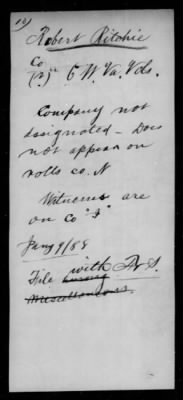 Robert Ritchie
Co
(?) 6 W. Va. Vols.
Company not
designated - Does
not appear on
rolls co. N
Witnesses are
on Co "I"
Jany 9/88
File with
Miscellaneous